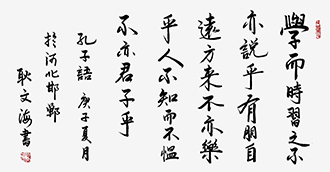 學而時習之不
亦説乎有朋自
遠方来不亦樂
乎人不知而不愠
不亦君子乎
孔子語 庚子夏月
於河北邯鄲
耿文海書